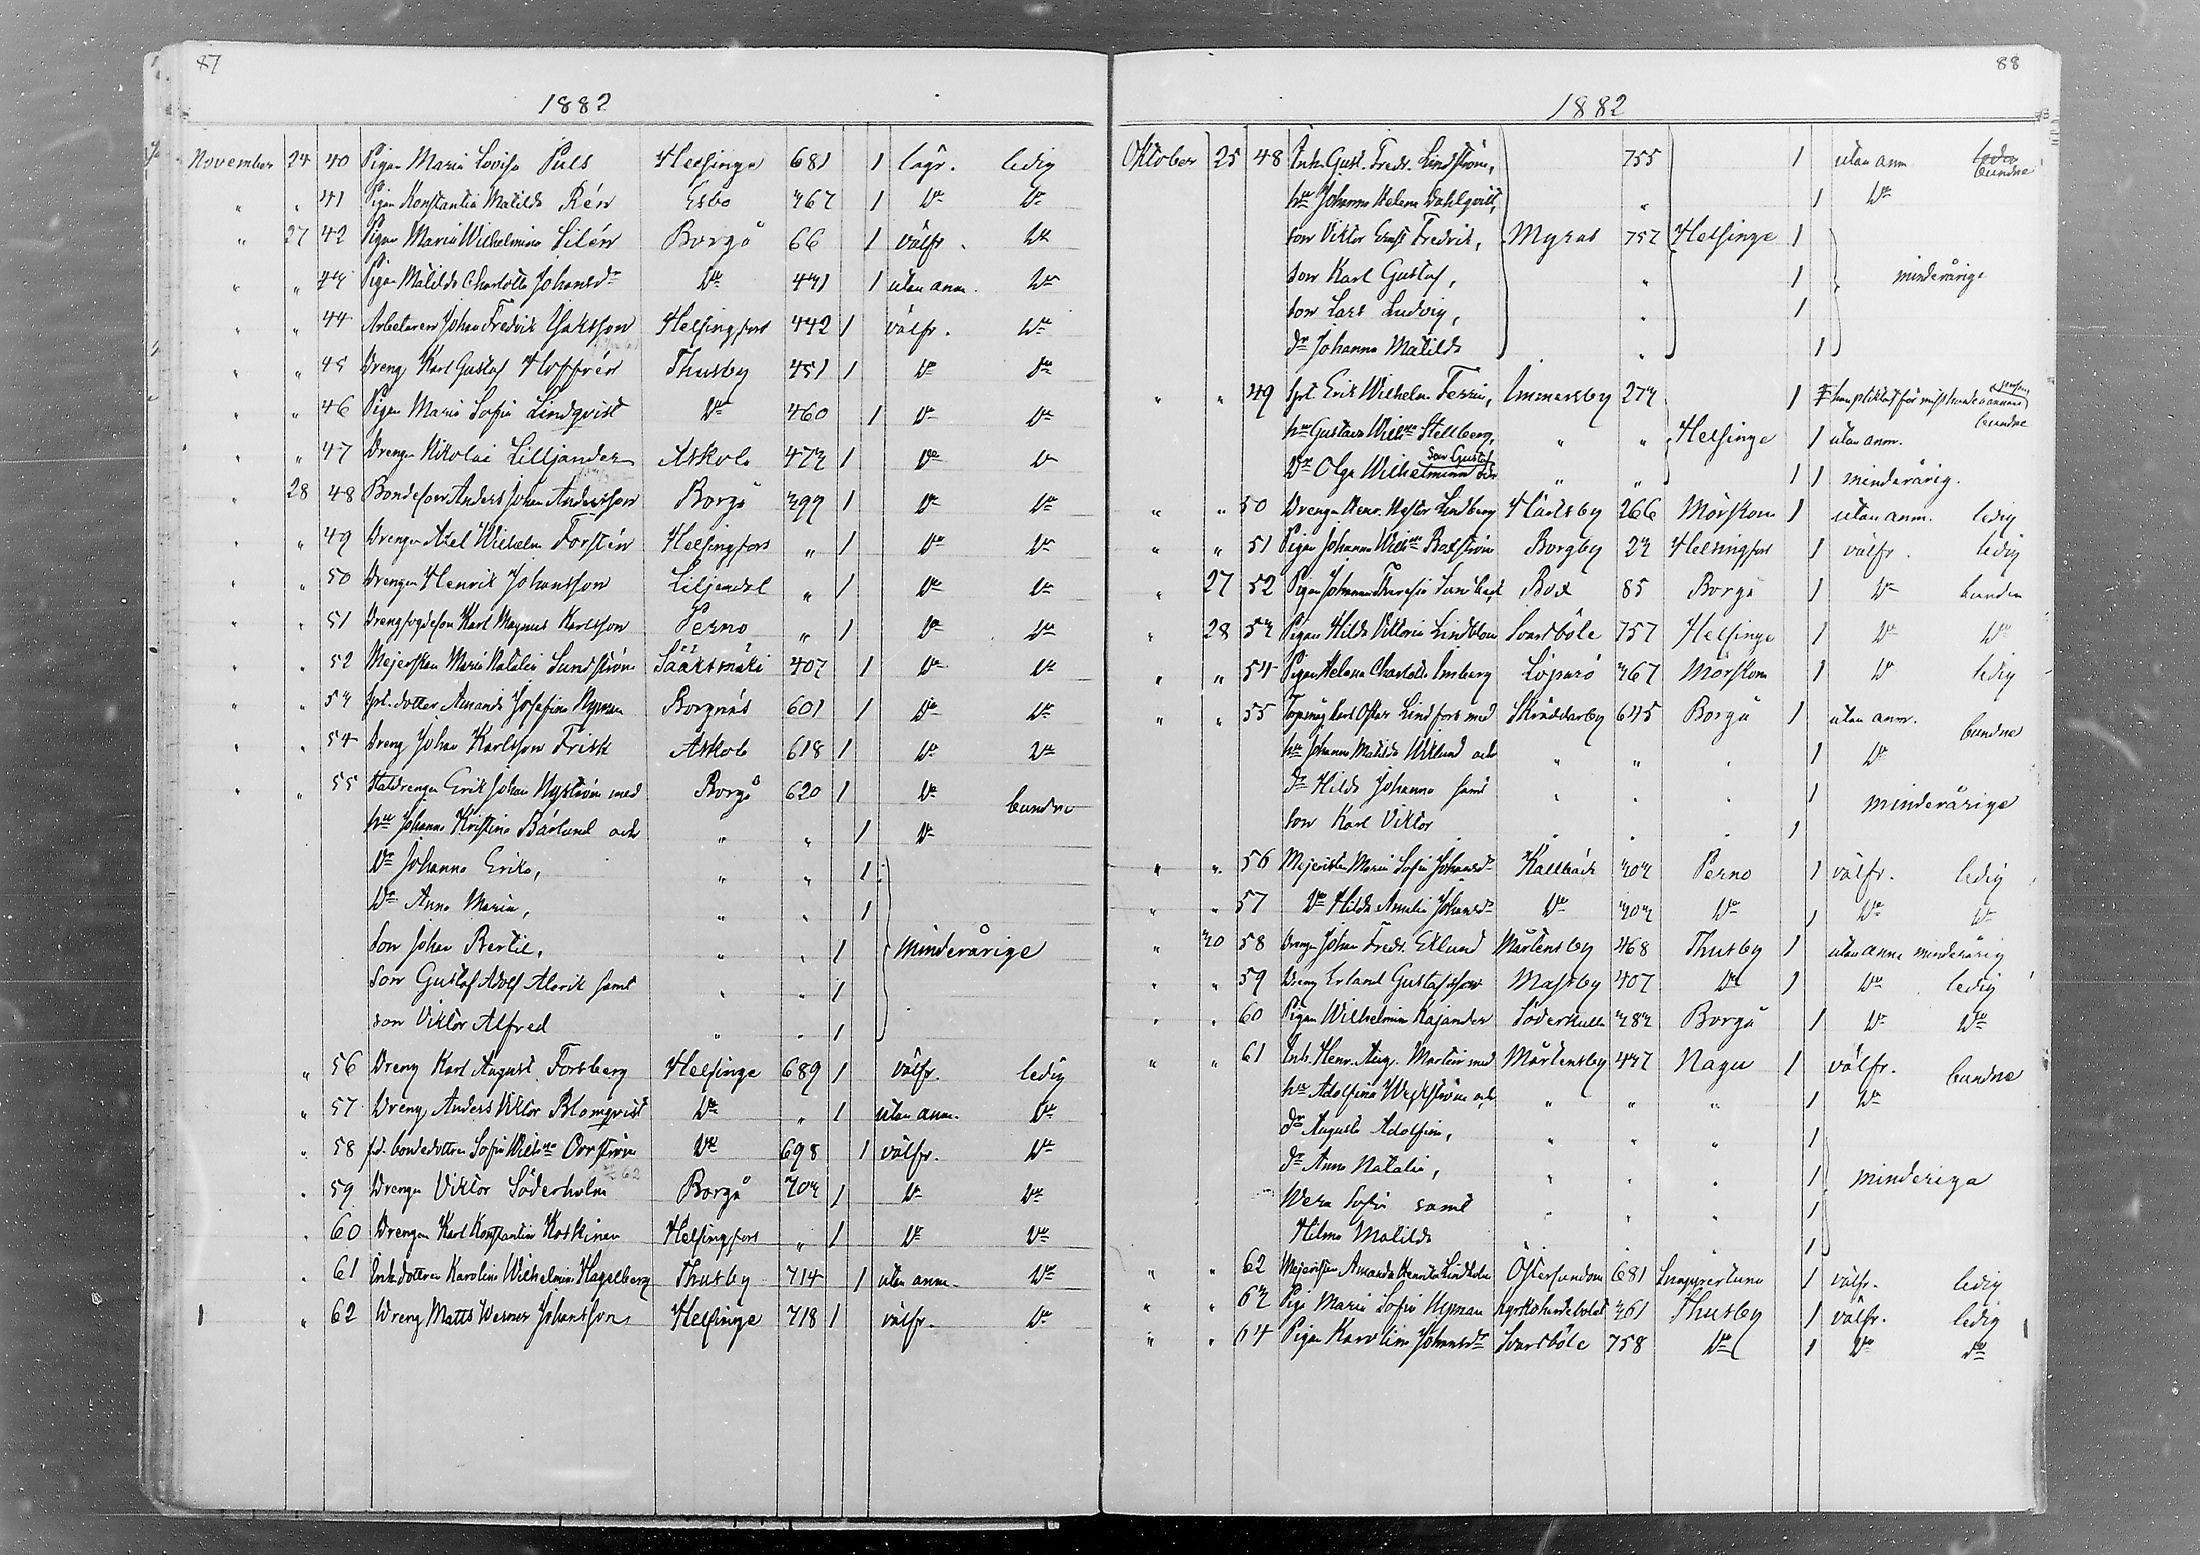 87
1882
November 24 40 Pigan Maria Lovisa Puls Helsinge 681 1 lägr. ledig
" " 41 Pigan Konstantia Matilda Rén Esbo 367 1 Do Do
" 27 42 Pigan Maria Wilhelmina Silén Borgå 66 1 välfr. Do
" " 43 Pigan Matilda Charlotta Johansdr Do 431 1 utan anm. Do
" " 44 Arbetaren Johan Fredrik Isaksson Helsingfors 442 1 välfr. Do
" " 45 Dreng Karl Gustaf Hoffrén Thusby 451 1 Do Do
" " 46 Pigan Maria Sofia Lindqvist Do 460 1 Do Do
" " 47 Drengen Nikolai Lilljander Askola 473 1 Do Do
" 28 48 Bondeson Anders Johan Andersson Borgå 399 1 Do Do
" " 49 Drengen Axel Wilhelm Forstén Helsingfors " 1 Do Do
" " 50 Drengen Henrik Johansson Liljendal " 1 Do Do
" " 51 Drengfogdeson Karl Magnus Karlsson Perno " 1 Do Do
" " 52 Mejerskan Maria Natalia Sundström Sääksmäki 407 1 Do Do
" " 53 Spt. dotter Amanda Josefina Nyman Borgnäs 601 1 Do Do
" " 54 Dreng Johan Karlsson Frisk Askola 618 1 Do Do
" " 55 Staldrengen Erik Johan Nyström med Borgå 620 1 Do bundne
hu Johanna Kristina Bärlund och " " 1 Do
Dr Johanna Erika, " " 1
Dr Anna Maria, " " 1
Son Johan Bertil, " " 1 minderårige
Son Gustaf Adolf Alarik samt " " 1
son Viktor Alfred " " 1
" 56 Dreng Karl August Forsberg Helsinge 689 1 välfr. ledig
" 57 Dreng Anders Viktor Blomqvist Do " 1 utan anm. Do
" 58 f.d. bondedottren Sofia Wilhna Orrström Do 698 1 välfr. Do
" 59 Drengen Viktor Söderholm Borgå 703 1 Do Do
" 60 Drengen Karl Konstantin Koskinen Helsingfors " 1 Do Do
" 61 Inh. dottren Karolina Wilhelmina Hagelberg Thusby 714 1 utan anm. Do
1 " 62 Dreng Matts Werner Johansson Helsinge 718 1 välfr. Do
88
1882
Oktober 25 48 Inh. Gust. Fredr. Lindström, 755 1 utan anm bundne
hu Johanna Helena Dahlqvist, " 1 Do
son Viktor Ernst Fredrik, Myras 757 Helsinge 1
son Karl Gustaf, " 1 minderårige
son Lars Ludvig, " 1
dr Johanna Matilda " 1
" " 49 Spt. Erik Wilhelm Ferrin, Immersby 273 1
hu Gustava Wilhna Stellberg, " " Helsinge 1 utan anm. bundne
Dr Olga Wilhelmina son Gustaf " " 1 1 minderårig.
" " 50 Drengen Henr. Nestor Lindberg Hårlsby 266 Mörskom 1 utan anm. ledig
" " 51 Pigan Johanna Wilhna Boxström Borgby 23 Helsingfors 1 välfr. ledig
" 27 52 Pigan Johanna Theresia Sundbäck Box 85 Borgå 1 Do bunden
" 28 53 Pigan Hilda Viktoria Lindblom Svartböle 757 Helsinge 1 Do Do
" " 54 Pigan Helena Charlotta Imberg Löparö 367 Mörskom 1 Do ledig
" " 55 Torpmåg Karl Oskar Lindfors med Skräddarby 645 Borgå 1 utan anm. bundne
hu Johanna Matilda Wiklund och " " " 1 Do
dr Hilda Johanna samt " " " 1 minderårige
son Karl Viktor " " " 1
" " 56 Mejerskan Maria Sofia Johansdr Kallbäck 303 Perno 1 välfr. ledig
" " 57 Do Hilda Amalia Johansdr Do 303 Do 1 Do Do
" 30 58 Drengen Johan Fredr. Eklund Mårtensby 468 Thusby 1 utan anm minderårig
" " 59 Dreng Erland Gustafsson Massby 407 Do 1 Do ledig
" " 60 Pigan Wilhelmina Kajander Söderkulla 383 Borgå 1 Do Do
" " 61 Inh. Henr. Aug. Martin med Mårtensby 447 Nagu 1 välfr. bundne
hu Adolfina Weckström och " " " 1 Do
dr Augusta Adolfina, " " " 1
dr Anna Natalia, " " " 1 minderiga
Wera Sofia samt " " " 1
Hilma Matilda " " " 1
" " 62 Mejerskan Amanda Henrika Lindholm Östersundom 681 1 välfr. ledig
" " 63 Pigan Maria Sofia Nyman Kyrkoherdebolet 361 Thusby 1 välfr. ledig
" " 64 Pigan Karolina Johansdr Svartböle 758 Do 1 Do Do